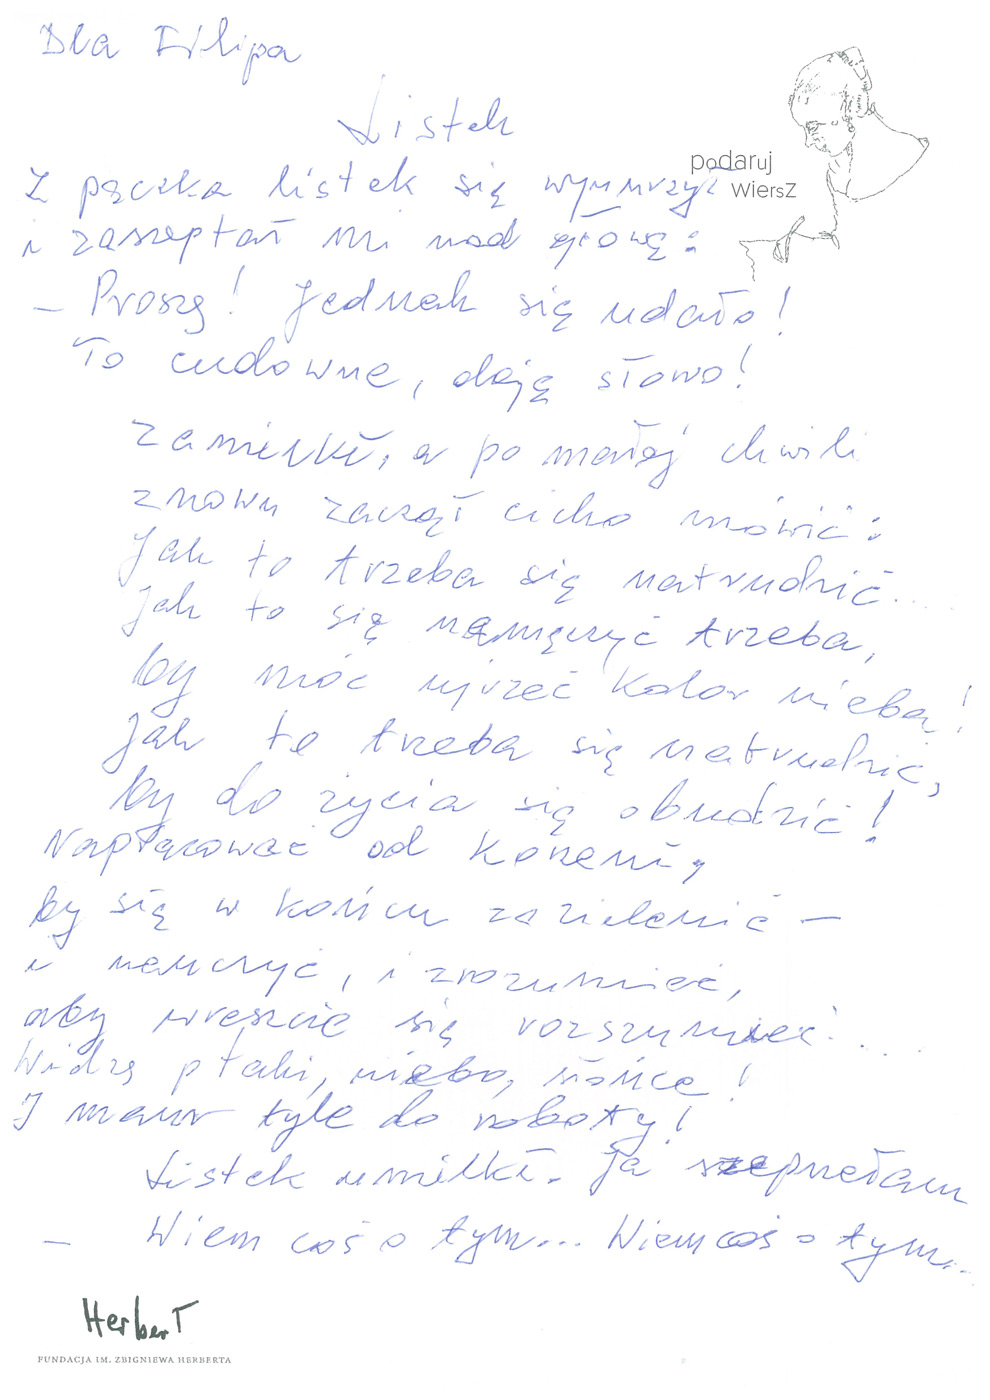 Dla Filipa
Listek
podaruj
WiersZ
Z pączka listek się wynurzył
i zaszeptał mi nad głową:
– Proszę! Jednak się udało!
To cudowne, daję słowo!
Zamilkł, a po małej chwili
znowu zaczął cicho mówić:
Jak to trzeba się natrudzić...
Jak to się namęczyć trzeba,
by móc ujrzeć kolor nieba!
Jak to trzeba się natrudzić,
by do życia się obudzić!
Napracować od korzeni,
by się w końcu zazielenić –
i nauczyć, i zrozumieć,
aby wreszcie się rozszumieć....
Widzę ptaki, niebo, słońce!
I mam tyle do roboty!
Listek umilkł. Ja szepnęłam
– Wiem coś o tym... Wiem coś o tym...
HerberT
FUNDACJA IM. ZBIGNIEWA HERBERTA